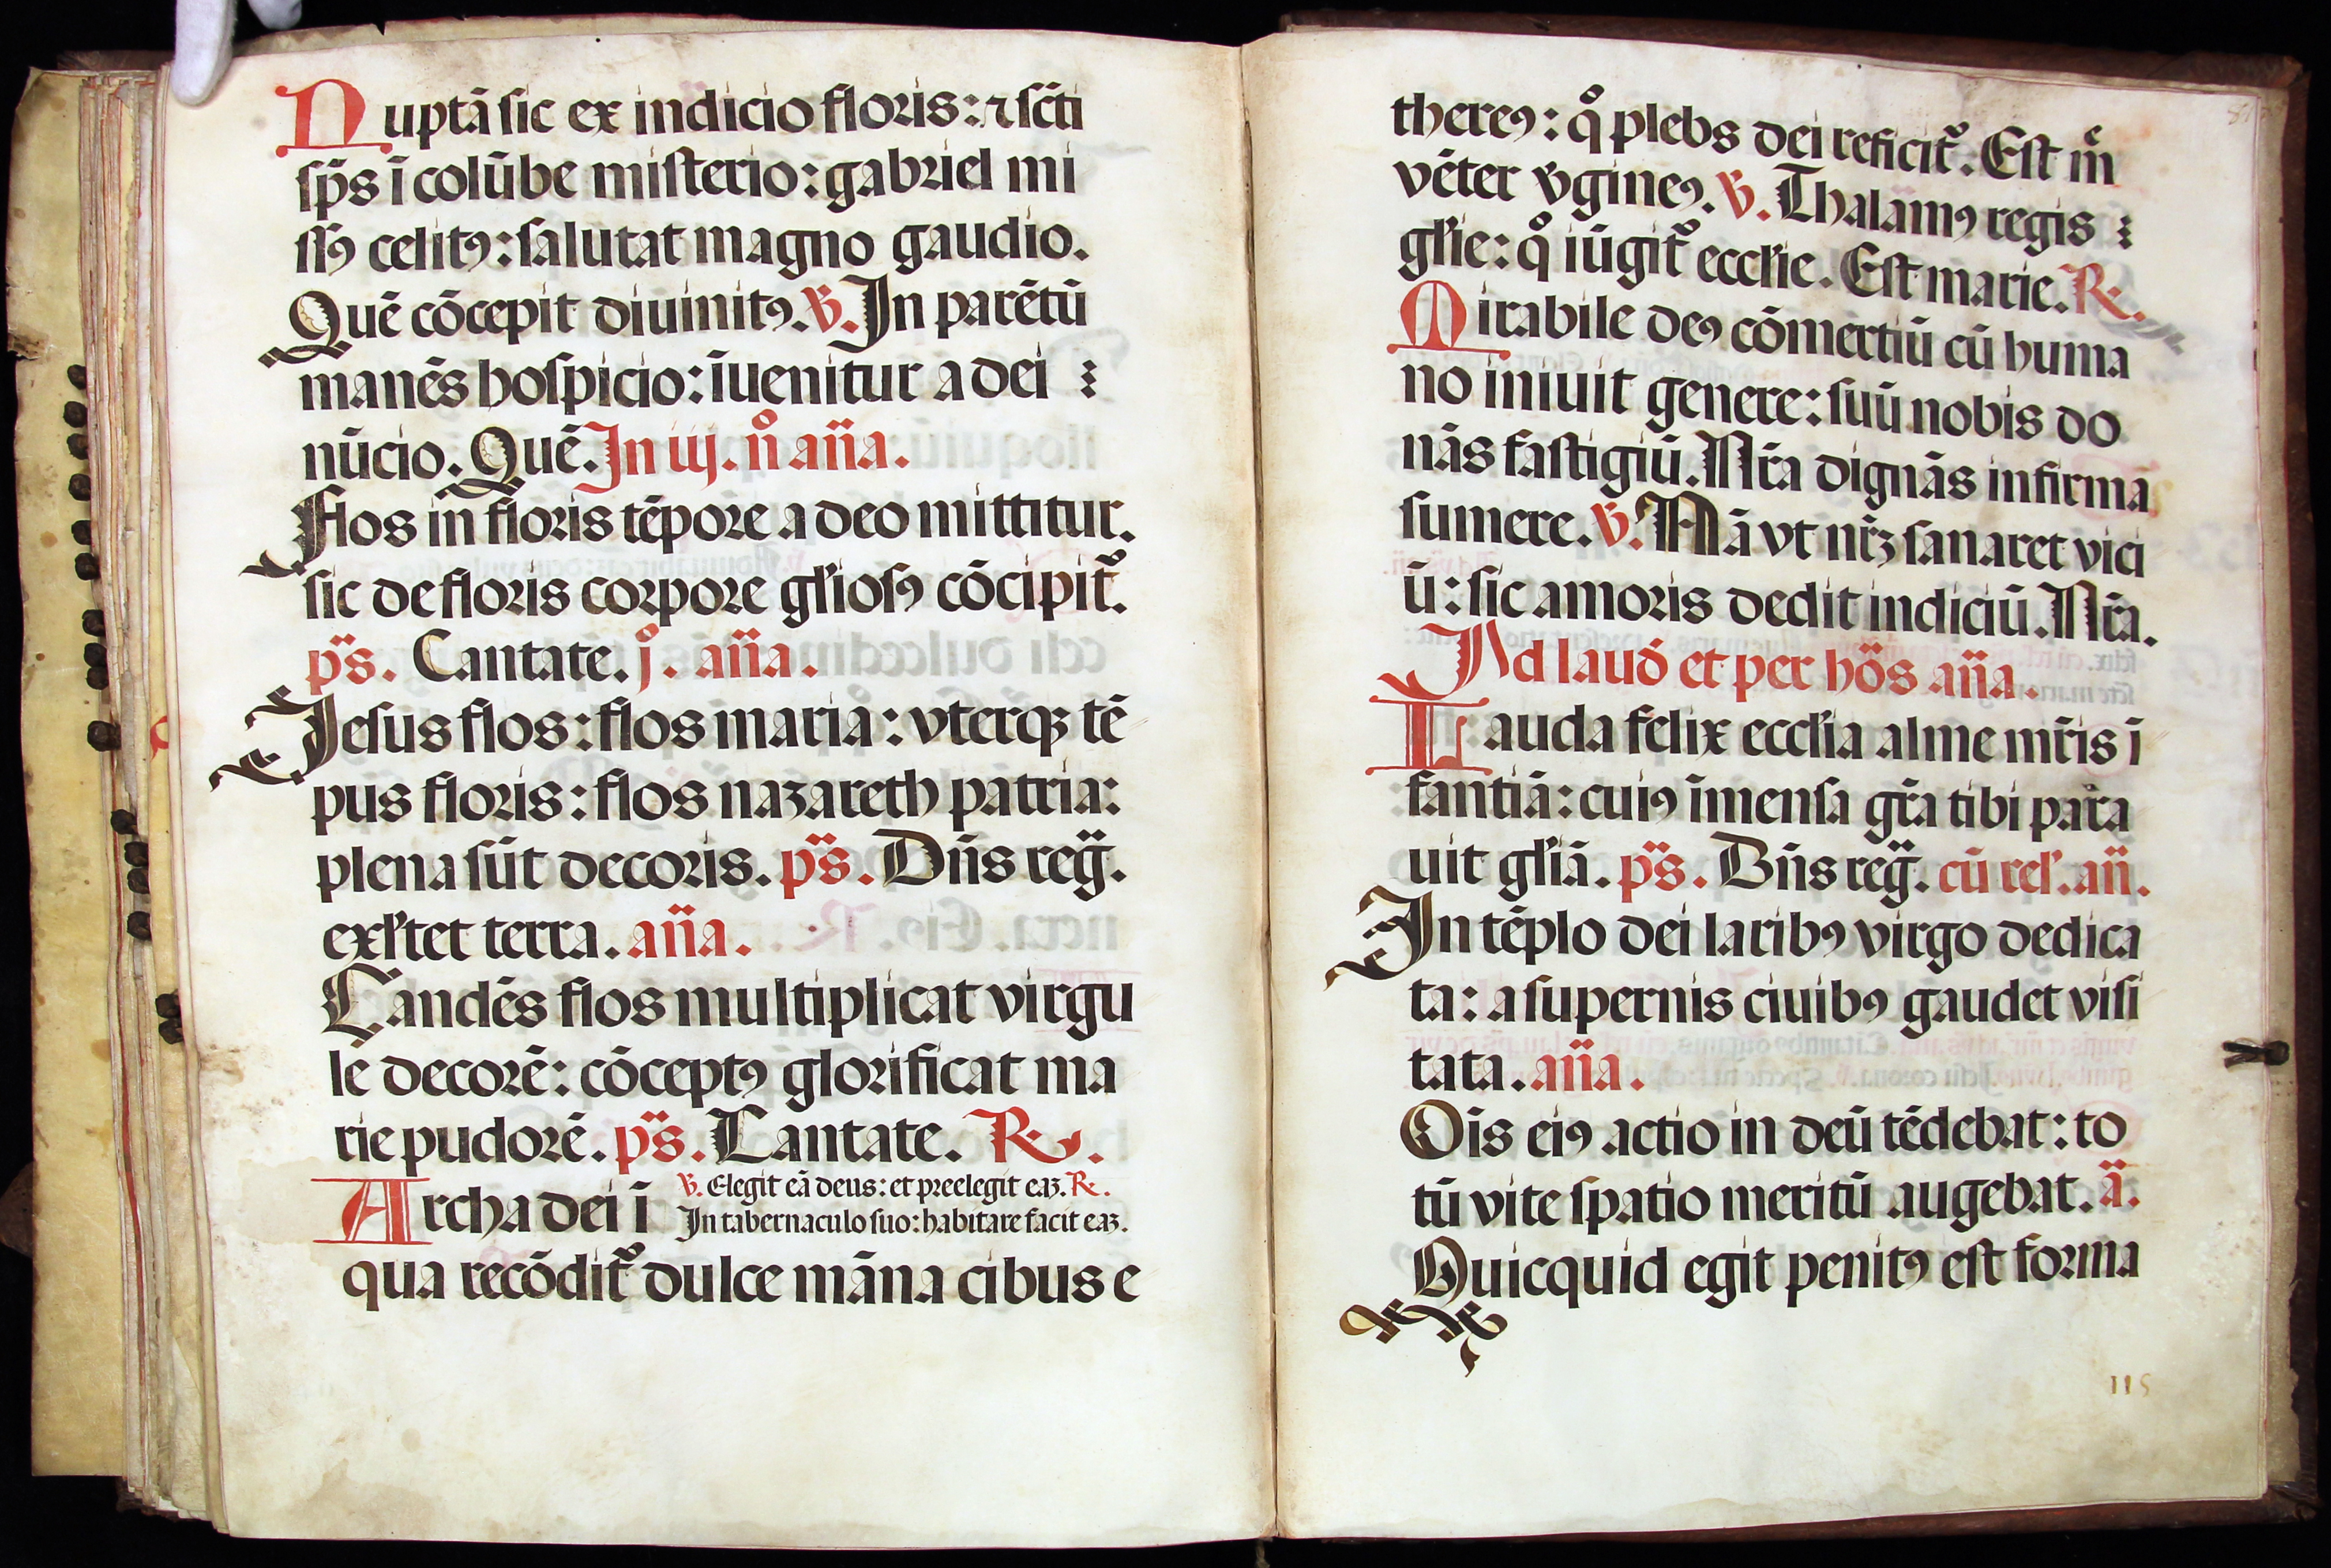 Nuptā sic ex indicio floris: ⁊ scīti
sp̄s ī colūbe misterio: gabriel mi
ssꝰ celitꝰ: salutat magno gaudio.
Quē cōcepit diuinitꝰ. ℣. In parētū
manēs hospicio: īuenitur a dei
nūcio. Quē. In iij. n̊ an̄a.
Flos in floris tēpore a deo mittitur.
sic de floris corpore gl'iosꝰ cōcipit᷑.
p̄s. Cantate. j̊. an̄a.
Jesus flos: flos maria: vterqꝫ tē
pus floris: flos nazareth patria:
plena sūt decoris. p̄s. Dn̄s reḡ.
exl'tet terra. an̄a.
Candēs flos multiplicat virgu
le decorē: cōceptꝰ glorificat ma
rie pudorē. p̄s. Cantate. ℟.
℣. Elegit eā deus: et preelegit eaꝫ. ℟.
Archa dei ī In tabernaculo suo: habitare facit eaꝫ.
qua recōdit᷑ dulce māna cibus e
thereꝰ: qͦ plebs dei reficit᷑. Est mͤ
vēter v̄gineꝰ. ℣. Thalamꝰ regis
gl'ie: qͦ iūgit᷑ eccl'ie. Est marie. ℟.
Mirabile deꝰ cōmertiū cū huma
no iniuit genere: suū nobis do
nās fastigiū. Nr̄a dignās infirma
sumere. ℣. Nā vt nr̄ꝫ sanaret vici
ū: sic amoris dedit indiciū. Nr̄a.
Ad laud̄ et per hōs an̄a.
Lauda felix eccl'ia alme mr̄is ī
fantiā: cuiꝰ īmensa gr̄a tibi para
uit gl'iā. p̄s. Dn̄s reḡ. cū rel'. an̄.
In tēplo dei laribꝰ virgo dedica
ta: a supernis ciuibꝰ gaudet visi
tata. an̄a.
Oīs eiꝰ actio in deū tēdebat: to
tū vite spatio meritū augebat. ā.
Quicquid egit penitꝰ est forma
115